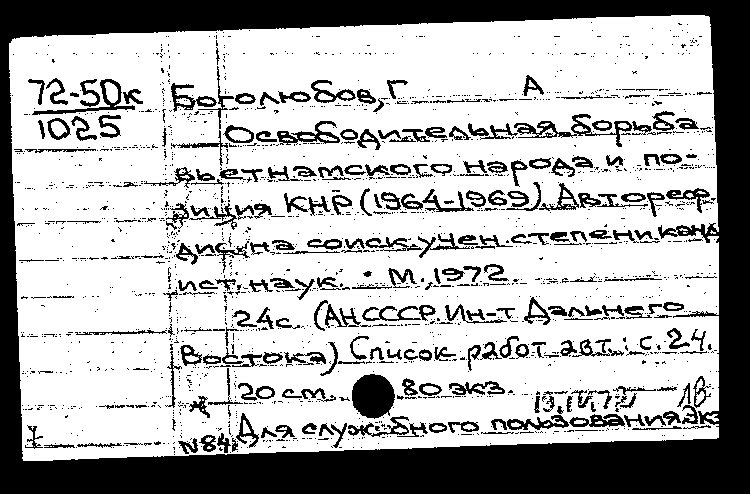 72-50к
1025
Боголюбов, Г А
Освободительная борьба
вьетнамского народа и по-
зиция КНР (1964-1969) Автореф.
дис. на соиск. учен. степени канд
ист. наук. • М., 1972.
24с. (АН СССР. Ин-т Дальнего
Востока) Список работ авт.: с. 24.
20 см. 80 экз.
19.IV.72 1В
№84. Для служебного пользования. Экз